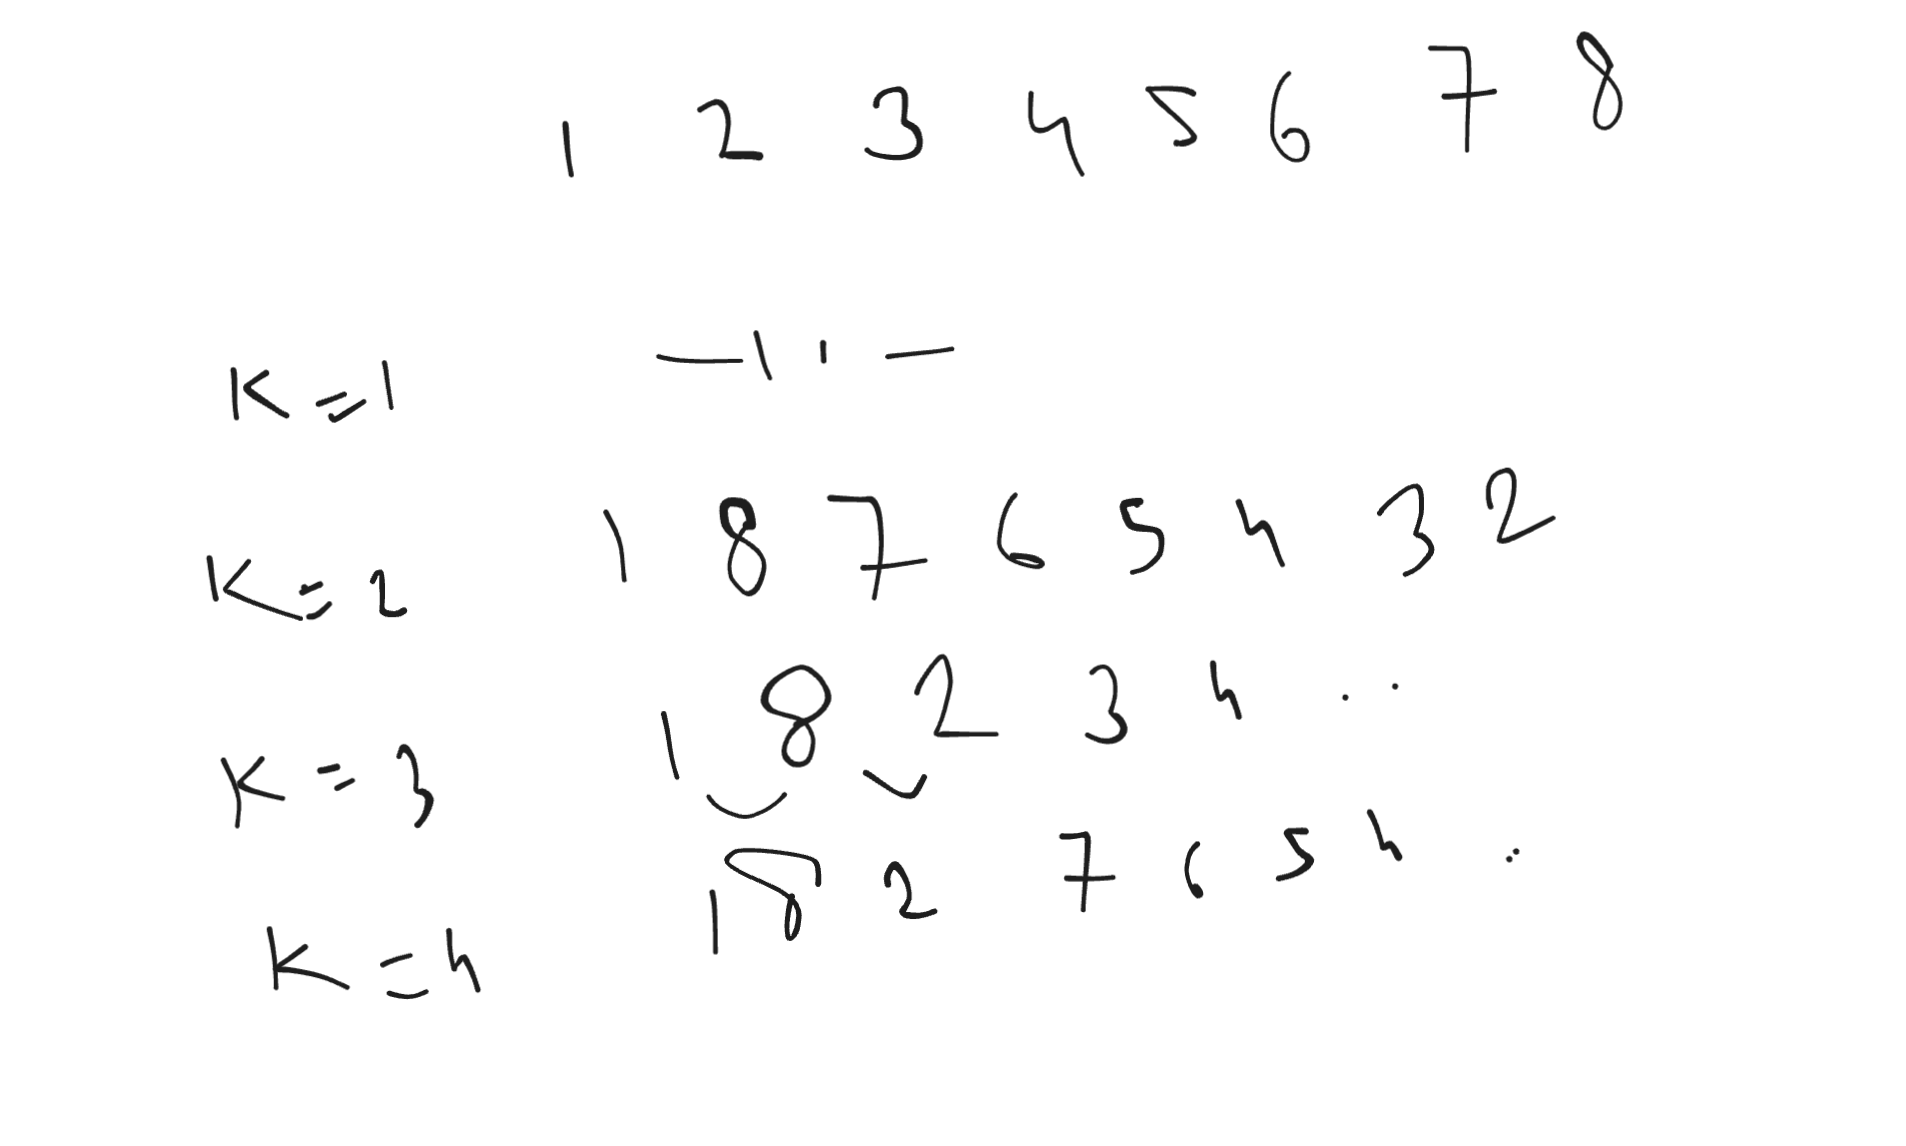 1 2 3 4 5 6 7 8
K=1 —1 ' —
K=2 1 8 7 6 5 4 3 2
K=3 1 8 2 3 4 ..
K=4 1 8 2 7 6 5 4 ..